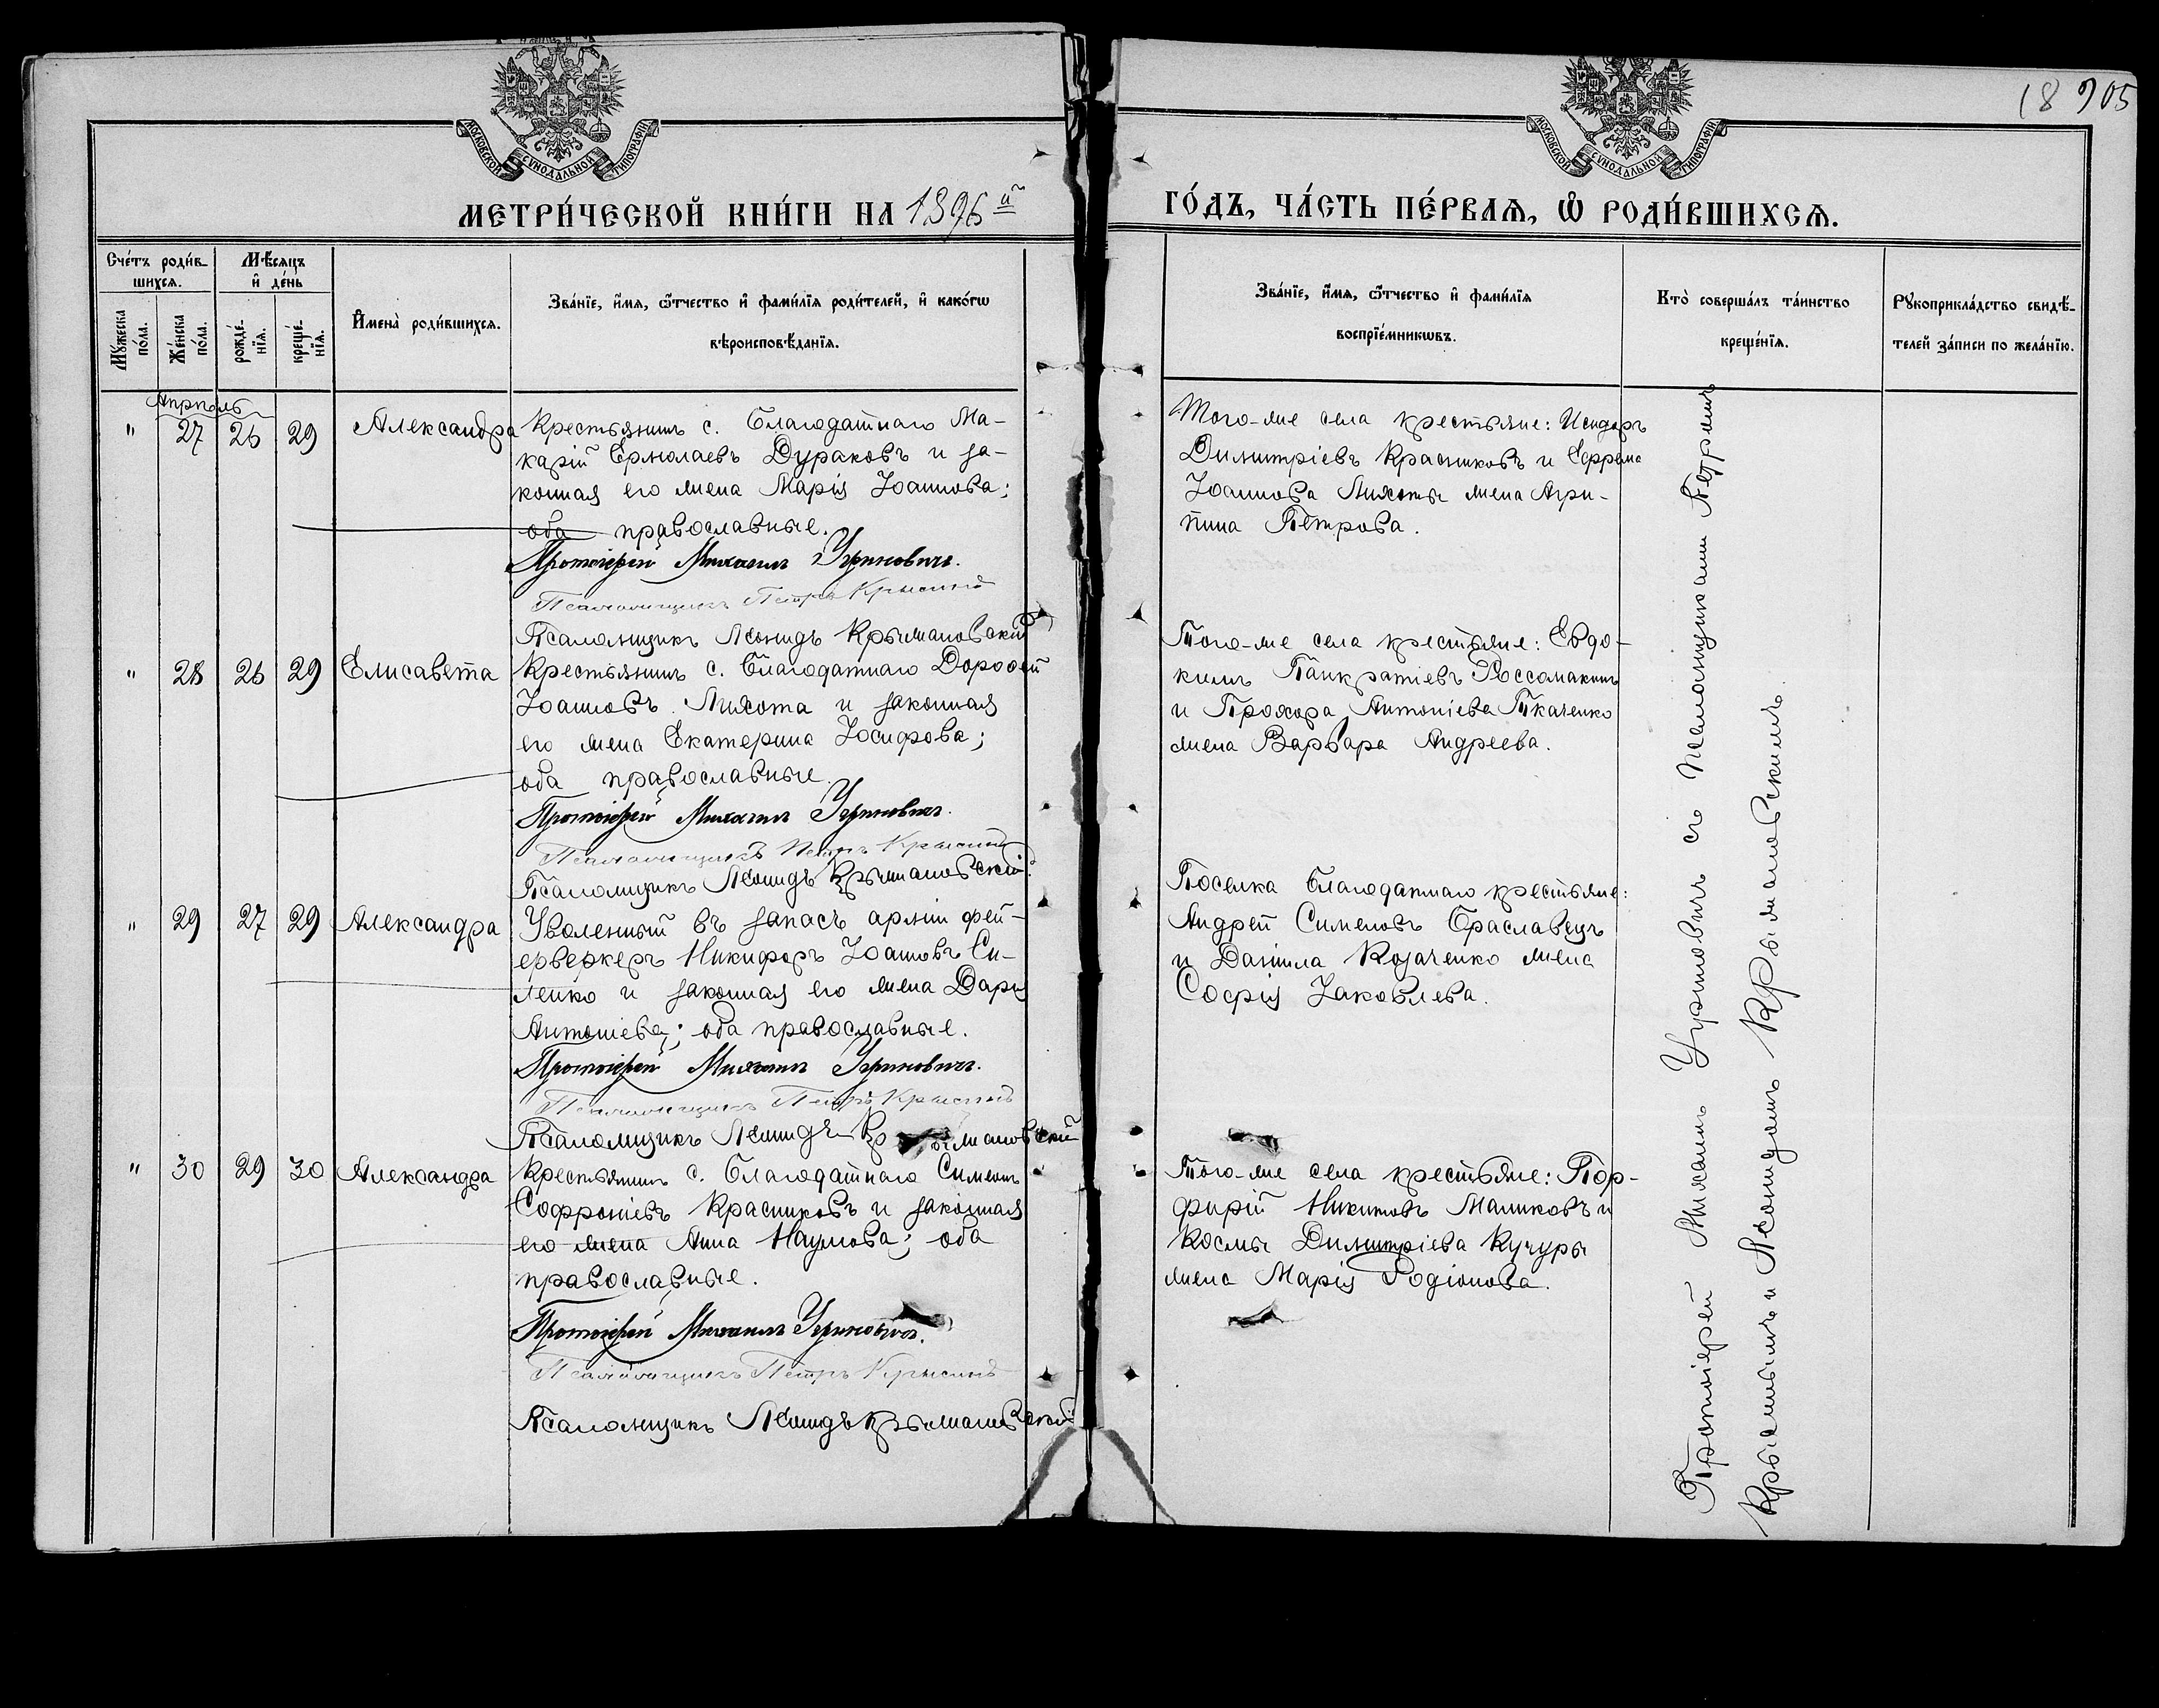 18 905
МОСКОВСКОЙ СѴНОДАЛЬНОЙ ТИПОГРАФІИ
МОСКОВСКОЙ СѴНОДАЛЬНОЙ ТИПОГРАФІИ
МЕТРИ́ЧЕСКОЙ КНИ́ГИ НА 1896й
ГО́ДЪ, ЧА́СТЬ ПЕ́РВАѦ, Ѡ҆ РОДИ́ВШИХСѦ.
Сче́тъ роди́в-
шихсѧ.
Мꙋ́жеска по́ла.
Же́нска по́ла.
Мѣ́сѧцъ
и҆ де́нь
рожде́-
нїѧ.
креще́-
нїѧ.
И҆мена̀ роди́вшихсѧ.
Зва́нїе, и҆́мѧ, ѻ҆́тчество и҆ фами́лїѧ роди́телей, и҆ како́гѡ
вѣроисповѣ́данїѧ.
Зва́нїе, и҆́мѧ, ѻ҆́тчество и҆ фами́лїѧ
воспрїе́мникѡвъ.
Кто̀ соверша́лъ та́инство
креще́нїѧ.
Рꙋкоприкла́дство свидѣ́-
телей за́писи по жела́нїю.
Апрѣль
" 27 26 29 Александра
Крестьянинъ с. Благодатнаго Ма-
карій Ермолаевъ Дураковъ и за-
конная его жена Марія Іоаннова;
оба православные.
Протоіерей Михаилъ Угриновичъ.
Псаломщикъ Петръ Крысинъ
Псаломщикъ Леонидъ Крыжановскій
Того-же села крестьяне: Исидоръ
Димитріевъ Красниковъ и Ефрема
Іоаннова Лихоты жена Агри-
пина Петрова.
" 28 26 29 Елисавета
Крестьянинъ с. Благодатнаго Дороѳей
Іоанновъ Лихота и законная
его жена Екатерина Іосифова;
оба православные.
Протоіерей Михаилъ Угриновичъ.
Псаломщикъ Петръ Крысинъ
Псаломщикъ Леонидъ Крыжановскій.
Того-же села крестьяне: Евдо-
кимъ Панкратіевъ Россомакинъ
и Прохора Антоніева Ткаченко
жена Варвара Андреева.
" 29 27 29 Александра
Уволенный въ запасъ арміи фей-
ерверкеръ Никифоръ Іоанновъ Си-
ленко и законная его жена Дарія
Антоніева; оба православные.
Протоіерей Михаилъ Угриновичъ.
Псаломщикъ Петръ Крысинъ
Псаломщикъ Леонидъ Крыжановскій
Поселка Благодатнаго крестьяне:
Андрей Симеоновъ Браславецъ
и Даніила Козаченко жена
Софія Іаковлева.
" 30 29 30 Александра
Крестьянинъ с. Благодатнаго Симеонъ
Софроніевъ Красниковъ и законная
его жена Анна Наумова; оба
православные.
Протоіерей Михаилъ Угриновичъ.
Псаломщикъ Петръ Крысинъ
Псаломщикъ Леонидъ Крыжановскій
Того-же села крестьяне: Пор-
фирій Никитовъ Маликовъ и
Космы Димитріева Кучуры
жена Марія Родіонова.
Протоіерей Михаилъ Угриновичъ съ Псаломщиками Петромъ
Крысинымъ и Леонидомъ Крыжановскимъ.